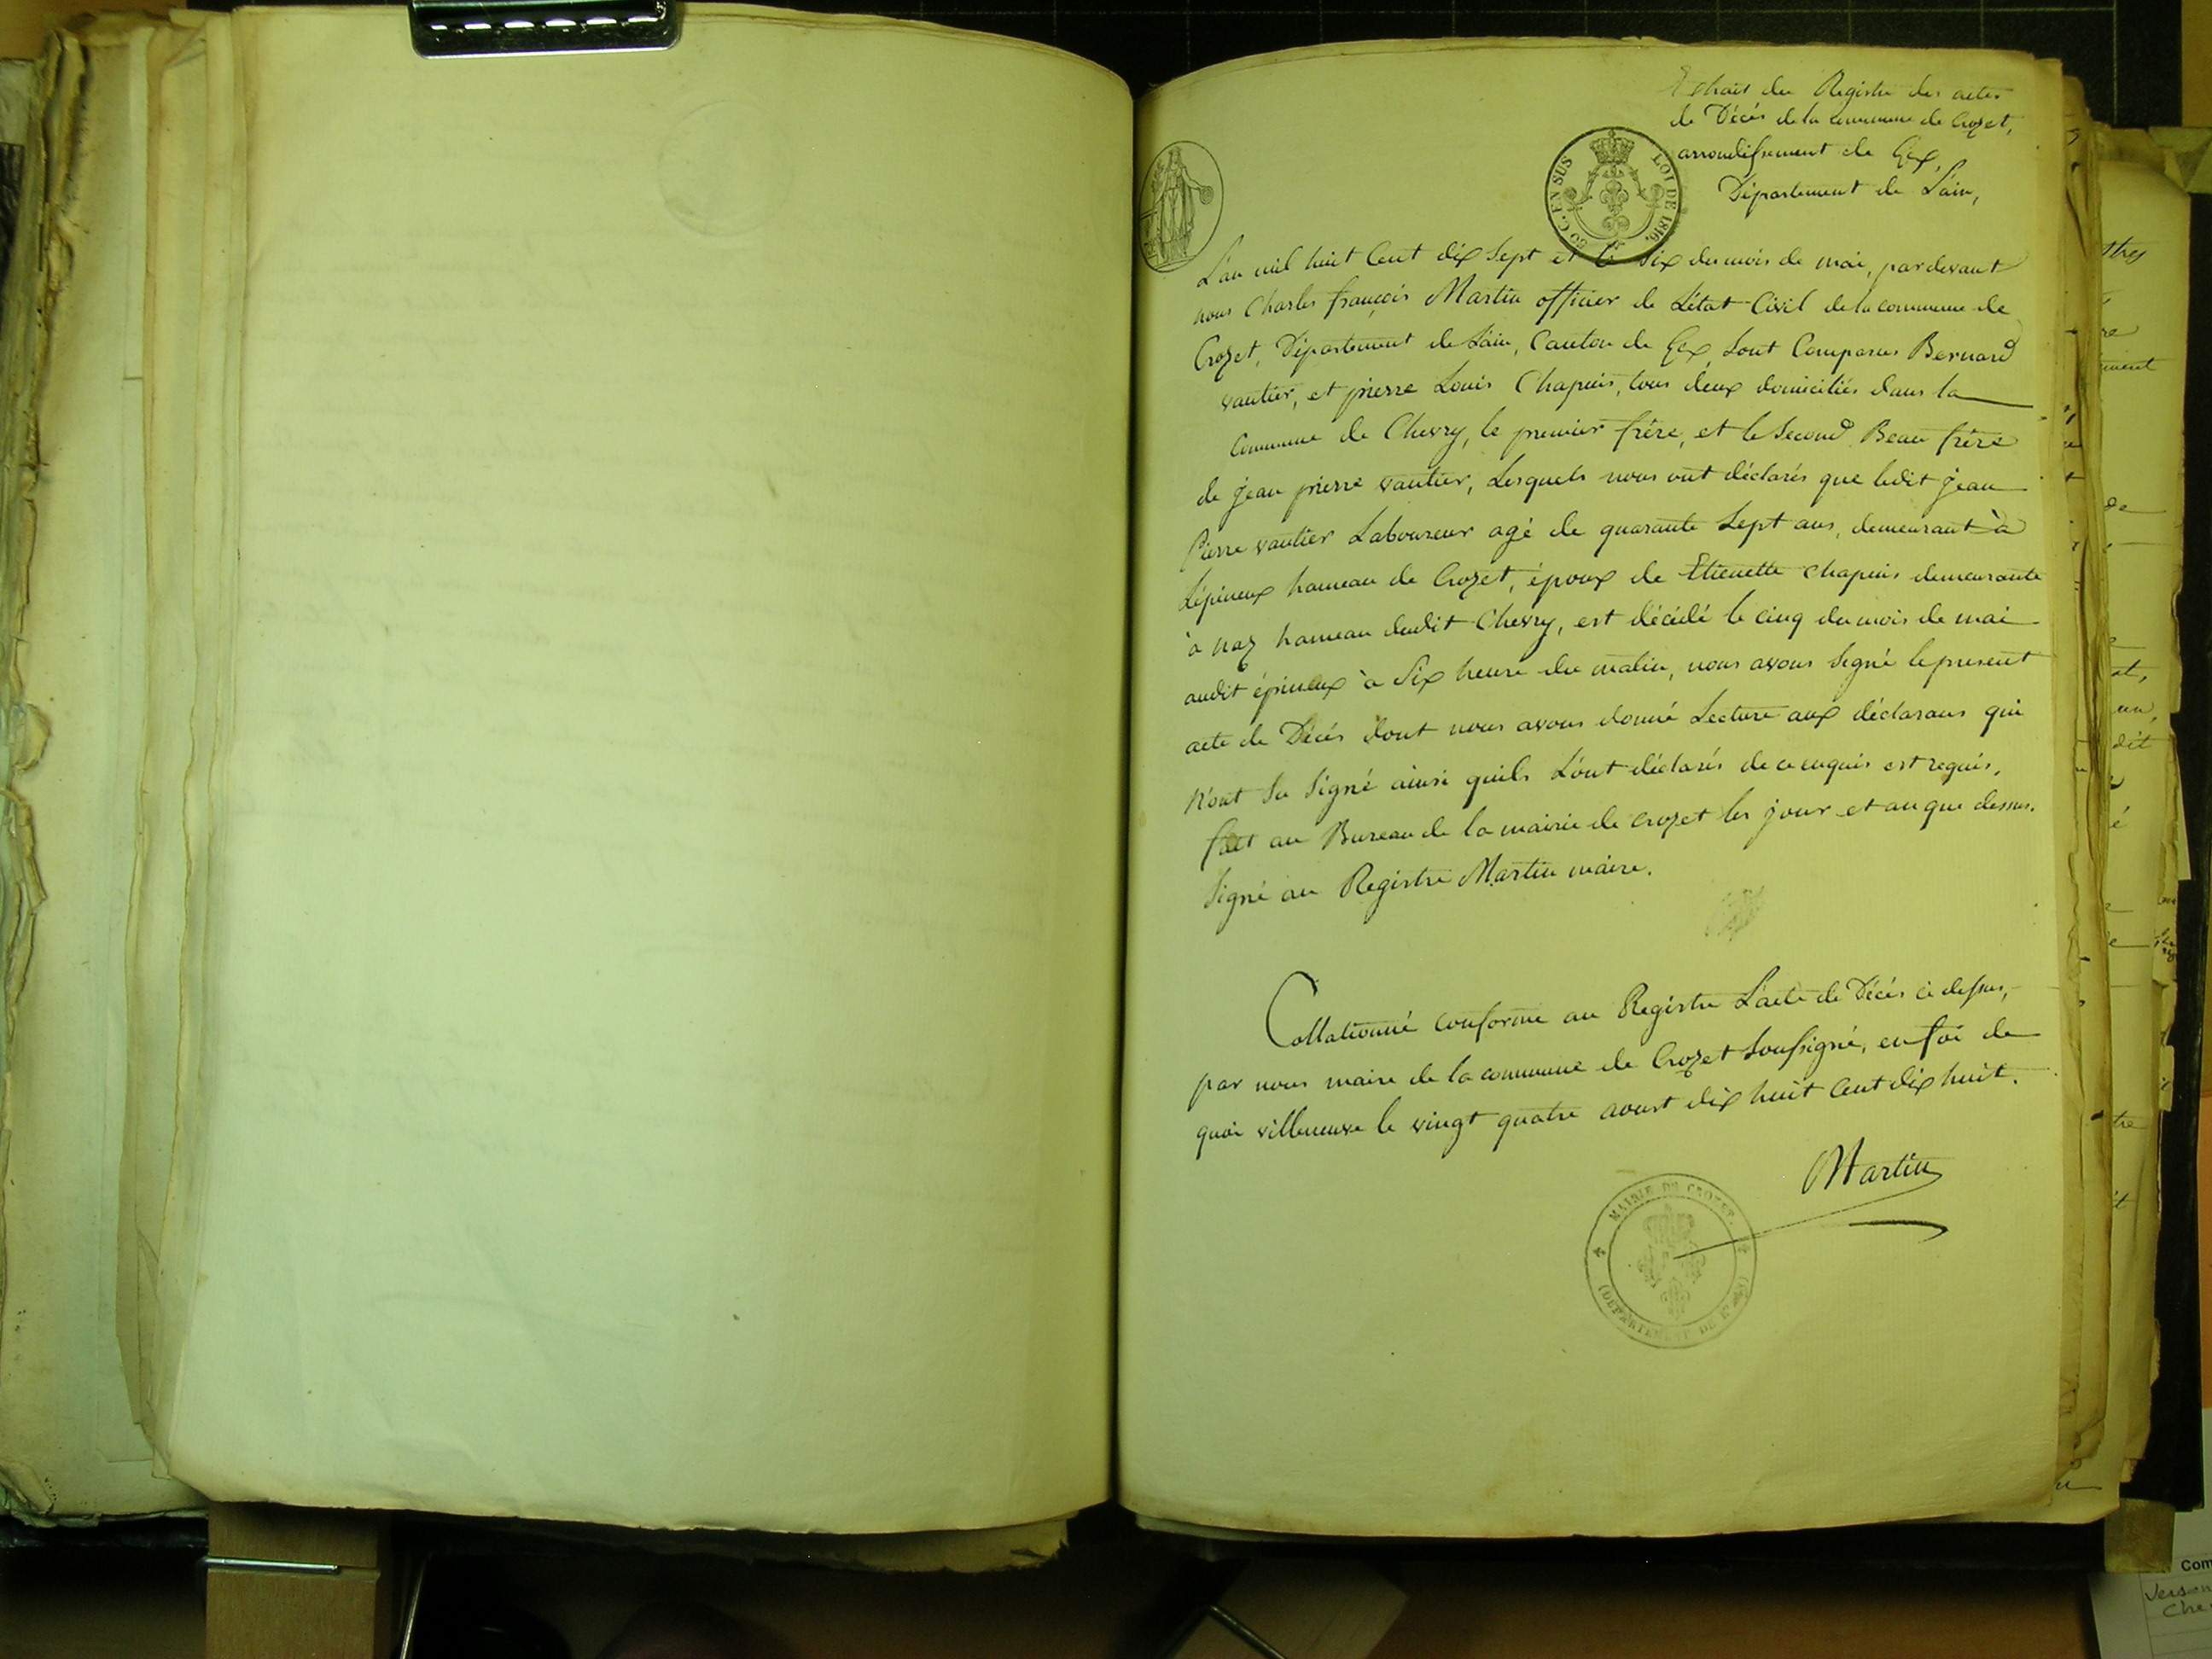 Extrait du Registre des actes
de Décés de la commune de Crozet,
arrondissement de Gex,
Département de L'ain,
50 C. EN SUS LOI DE 1816.
L'an mil huit Cent dix sept et le six du mois de mai, par devant
nous Charles françois Martin officier de L'état-Civil de la commune de
Crozet, Département de L'ain, Canton de Gex, sont Comparus Bernard
vautier, et pierre Louis Chapuis, tous deux domiciliés dans la
Commune de Chevry, le premier frére, et le second Beau frére
de jean pierre vautier, Lesquels nous ont déclarés que ledit jean
Pierre vautier Laboureur agé de quarante sept ans, demeurant à
Lépineux hameau de Crozet, époux de Etienette chapuis demeurante
à naz hameau dudit Chevry, est décédé le cinq du mois de mai
audit épineux à six heure du matin, nous avons signé le present
acte de Décés dont nous avons donné Lecture aux déclarans qui
N'ont su signé ainsi quils L'ont déclarés de ce enquis est requis,
fait au Bureau de la mairie de crozet les jour et an que dessus.
signé au Registre Martin maire.
Collationné conforme au Registre L'acte de Décés ci dessus,
par nous maire de la commune de Crozet soussigné, en foi de
quoi villeneuve le vingt quatre aoust dix huit Cent dix huit.
Martin
MAIRIE DU CROZET.
(DEPARTEMENT DE L'AIN)